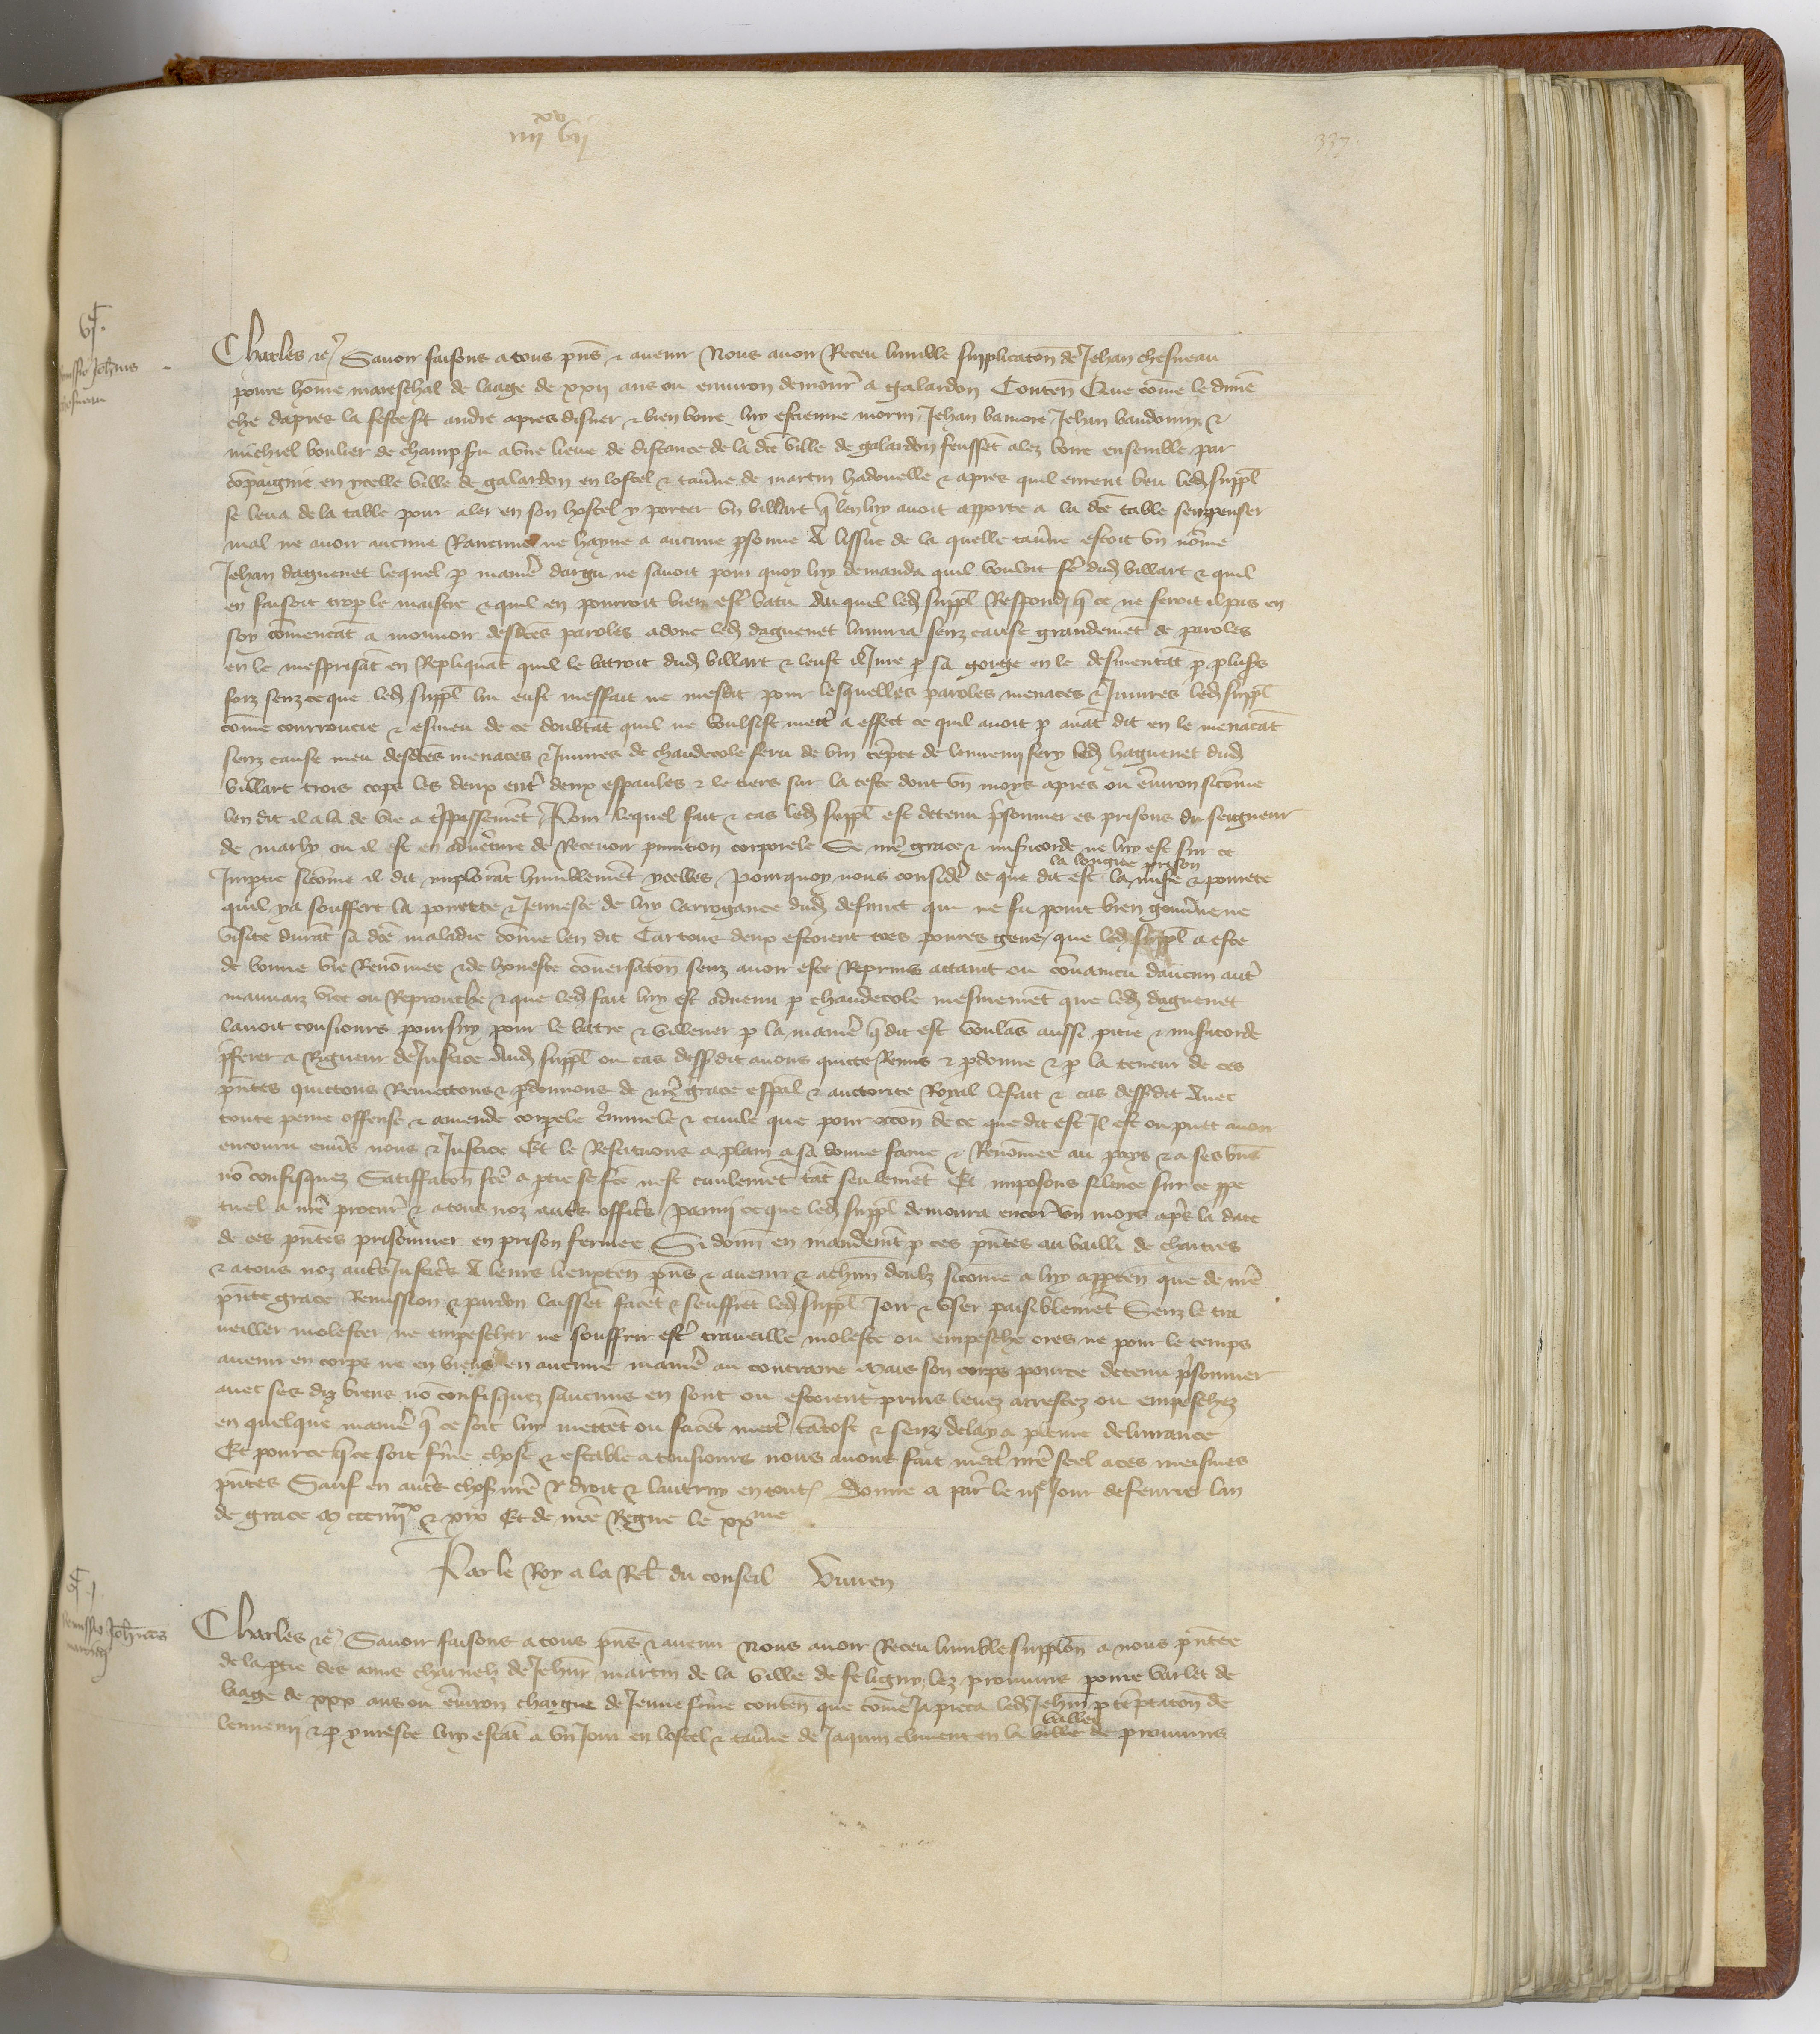 xx
iiii vii
337
vi.
Remissio Johannis
chesneau
Charles etc. Savoir faisons a tous pns et avenir Nous avoir Receu lumble supplicaton de Jehan chesneau
povre home mareschal de laage de xxii ans ou environ demour a galardon Conten Que come le dimen
che dapres la feste st andre apres disner et bien boire luy estienne morin Jehan Jehan baudouin et
michiel boulier de champseru a une lieue de distance de la dce ville de galardon feussent alez boire ensemble par
compaignie en ycelle ville de galardon en lostel et taverne de martin hadouelle et apres quil eurent beu led suppl
se leva de la table pour aler en son hostel y porter un billart q len luy avoit apporte a la dce table senz penser
mal ne avoir aucune Rancune ne hayne a aucune psonne A lissue de la quelle taverne estoit un nome
Jehan daguenet lequel p maniere dargu ne savoit pour quoy luy demanda quil vouloit fe dud billart et quil
en faisoit trop le maistre et quil en pourroit bien est batu Au quel led suppl Respond q ce ne seroit il pas en
soy comencat a mouvoir desdces paroles adonc led daguenet linjuria senz cause grandemet de paroles
en le mesprisat en Repliquat quil le batroit dud billart et leust il Jure p sa gorge en le desmentat p plus
foiz senz ce que led suppl lui eust meffait ne mesdit pour lesquelles paroles menaces et Injures led suppl
come courroucie et esmeu de ce doubtat quil ne voulsist mett a effect ce quil avoit p avat dit en le menacat
senz cause meu desdces menaces et Injures de chaudecole feru de un tepte de lennemi fery led haguenet dud
billart trois cops les deux ent deux espaules et le tiers sur la teste dont un moys apres ou environ sicome
len dit il ala de vie a trespassemet Pour lequel fait et cas led suppl est detenu prisonnier es prisons du seigneur
de marly ou il est en adventure de Recevoir punition corporele Se nre grace et misericorde ne luy est sur ce
Imptie sicome il dit implorat humblemet ycelles Pourquoy nous consider ce que dit est la longue prison la mise et povrete
quil y a souffert la povrete et Jeunesce de luy larrogance dud defunct que ne fu point bien gouverne ne
visite durat sa dce maladie come len dit Car tous deux estoient tres povres gens que led suppl a este
de bonne vie Renomee et de honeste conversaton senz avoir este Reprins actaint ou convaincu daucun aut
mauvaiz vice ou Reprouche et que led fait luy est advenu p chaudecole mesmemet que led daguenet
lavoit tousjours poursuy pour le batre et villener p la maniere q dit est voulas aussi pitie et misericorde
preferer a Rigueur de Justice Aud suppl ou cas dessusdit avons quitte Remis et pdonne et p la teneur de ces
pntes quittons Remettons et pdonnons de nre grace espal et auctorite Royal le fait et cas dessusdit Avec
toute peine offense et amende corpele criminele et civile que pour occon de ce que dit est Il est ou puet avoir
encouru envers nous et Justice Et le Restituons a plain a sa bonne fame et Renomee au pays et a ses biens
no confisquez Satiffaton fce a ptie se fce nest civilemet tat seulemet Et imposons silence sur ce ppe
tuel a nre procur et a tous noz auts offices Parmi ce que led suppl demoura encor un moys aps la date
de ces pntes prisonnier en prison fermee Si donn en mandemt p ces pntes au bailli de chartres
et a tous noz auts Justices A leurs lieuxten pns et avenir et a chun deulz sicome a luy apptien que de nre
pnte grace Remission et pardon laissent facent et seuffret led suppl Joir et user paisiblemet Senz le tra
veiller molester ne empescher ne souffrir est traveille moleste ou empesche ores ne pour le temps
avenir en corps ne en biens en aucune maniere au contraire Mais son corps pource detenu prisonnier
avec ses diz biens no confisquez saucuns en sont ou estoient prins levez arrestez ou empeschez
en quelque maniere q ce soit luy mettet ou facet mett tatost et senz delay a pleine delivrance
Et pource q ce soit ferme chose et estable a tousjours nous avons fait mett nre seel a ces meismes
pntes Sauf en auts chos nre droit et lautruy en tout Donne a par le iiie Jour de fevrier lan
de grace M CCC iiiixx et xix Et de nre Regne le xxme
Par le Roy a la Rel du conseil Viuien
vi.
Remissio Johannis
martin
Charles etc Savoir faisons a tous pns et avenir Nous avoir Receu lumble supplon a nous pntee
de la ptie des amis charnelz de Jehan martin de la ville de seligny lez prouvins povre varlet de
laage de xxx ans ou environ chargie de Jeune feme conten que come Ja pieca led Jehan p teptaton de
lennemi et p yvresce luy estat a un Jour en lostel et taverne de Jaquin climent en la ville vallee de prouvins